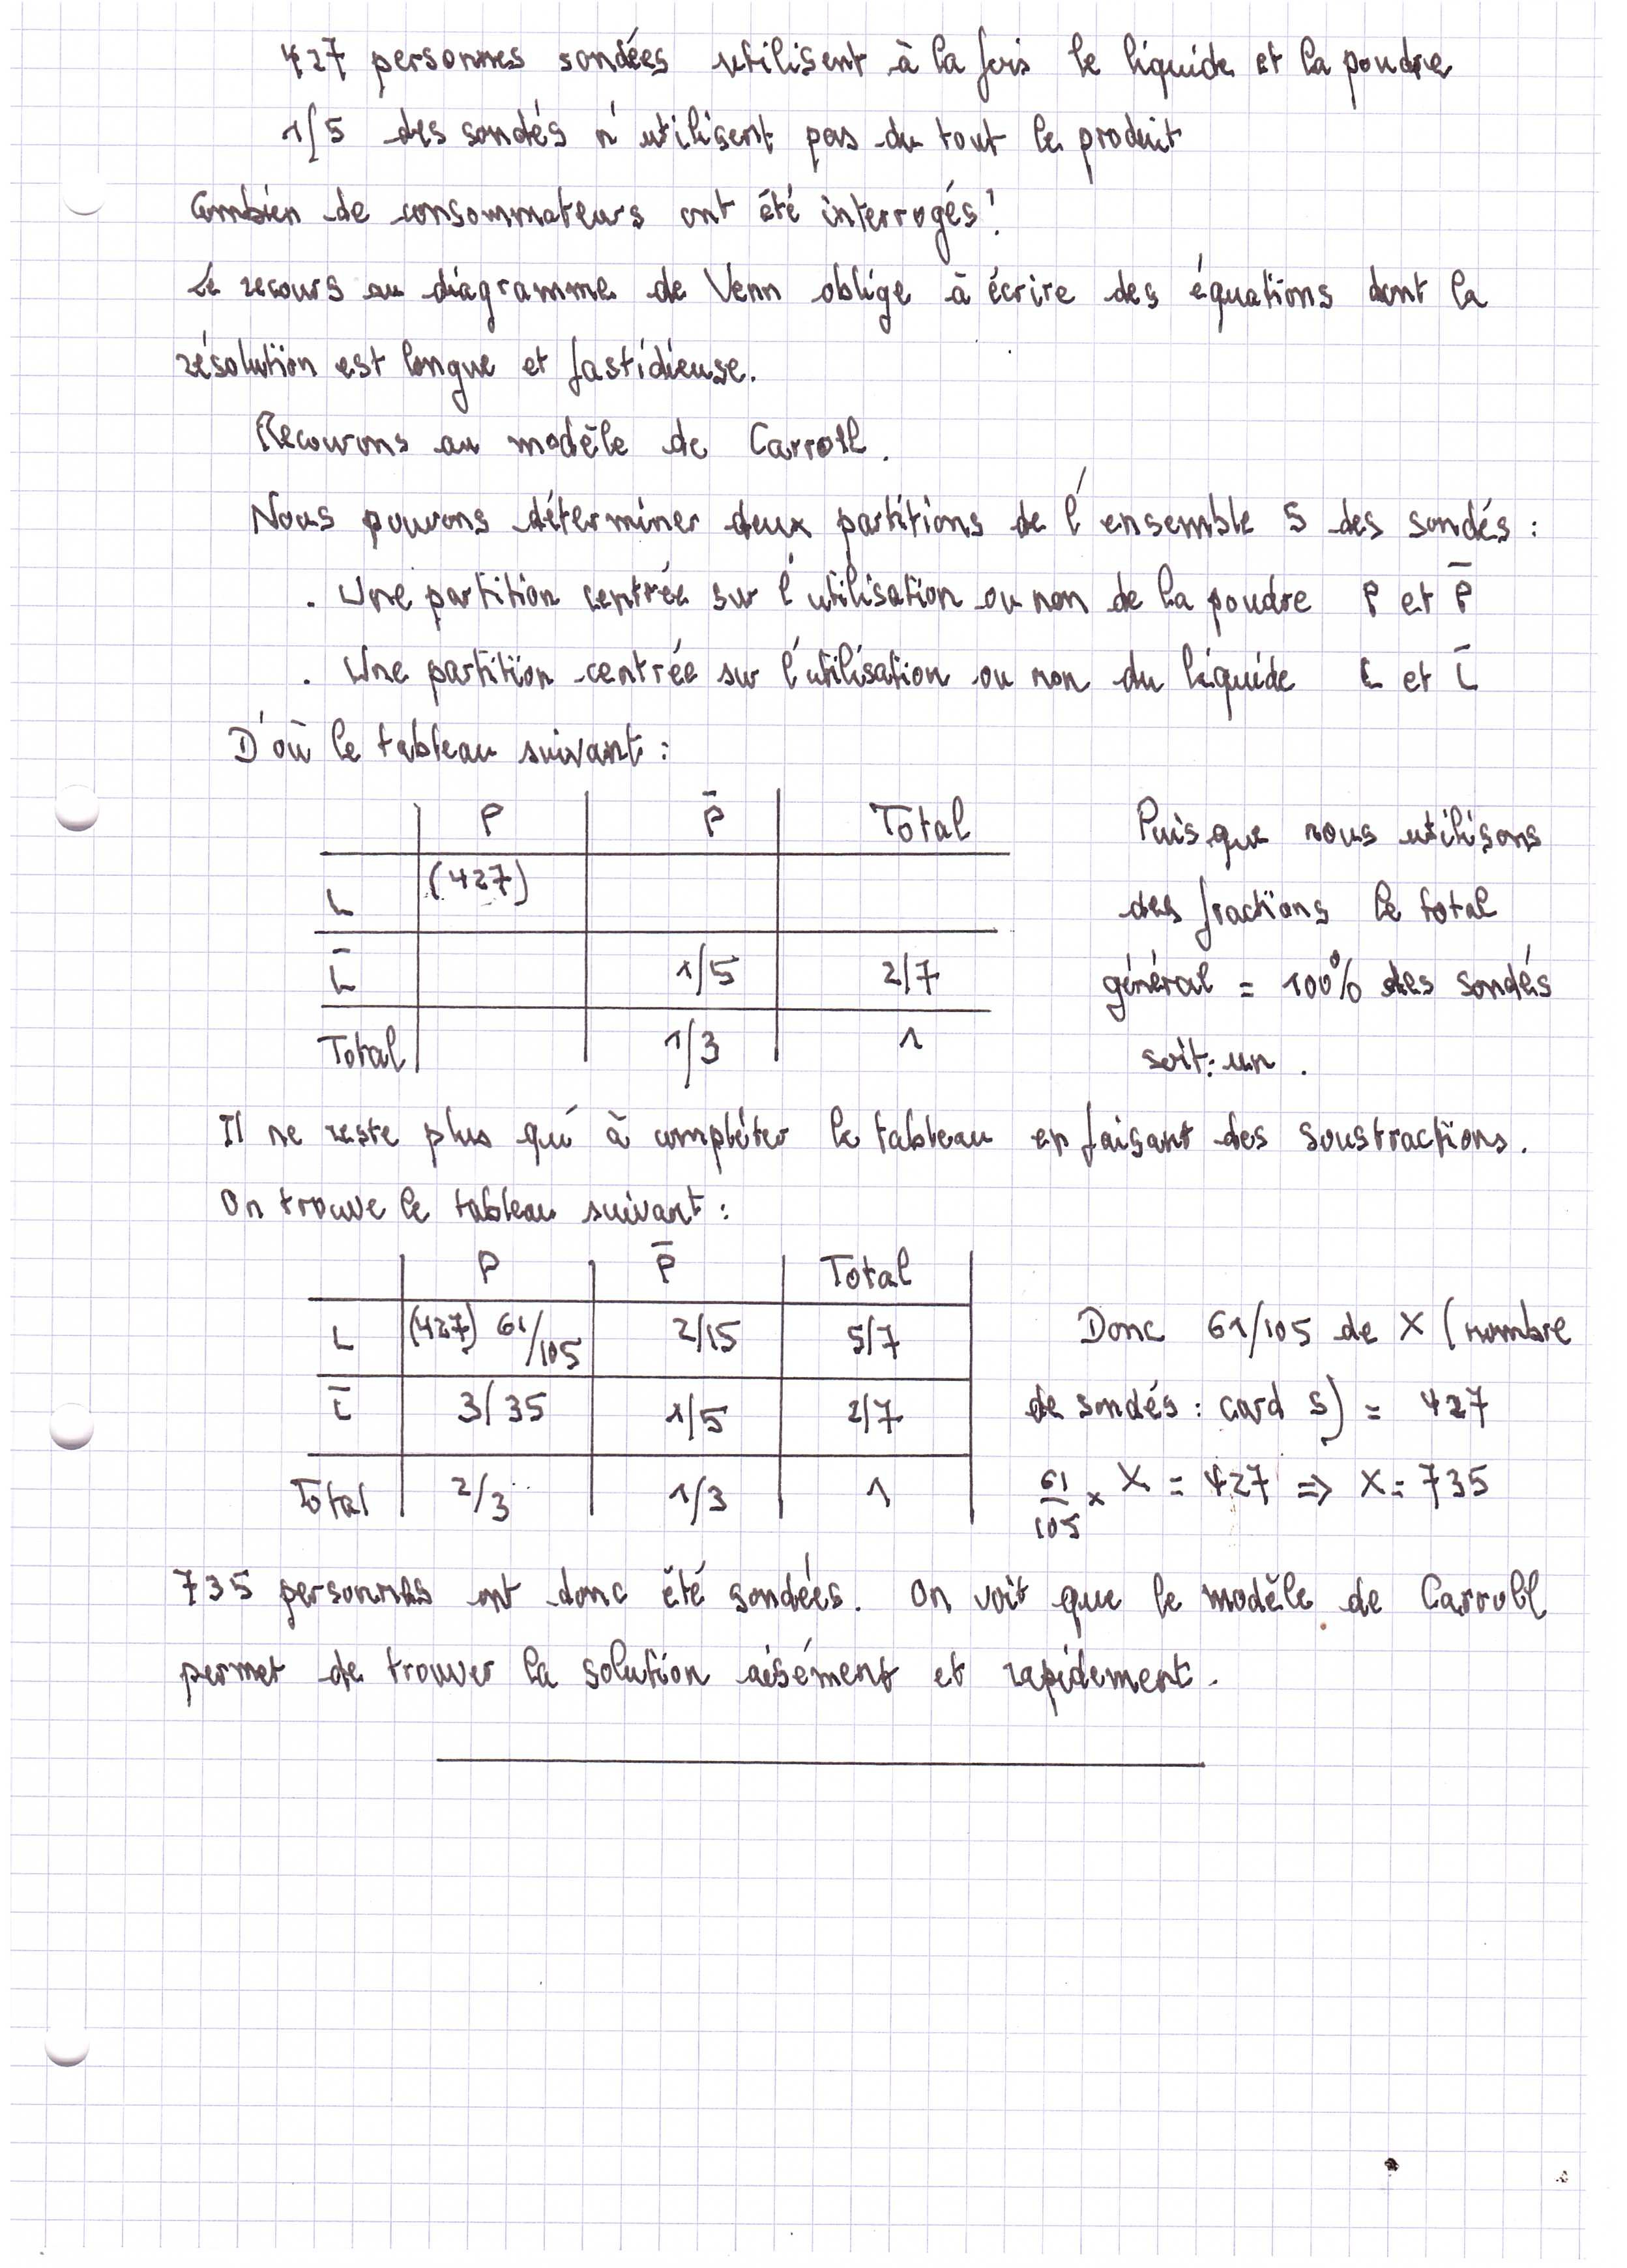 427 personnes sondées utilisent à la fois le liquide et la poudre
1/5 des sondés n'utilisent pas du tout le produit
Combien de consommateurs ont été interrogés?
Le recours au diagramme de Venn oblige à écrire des équations dont la
résolution est longue et fastidieuse.
Recourons au modèle de Carroll.
Nous pouvons déterminer deux partitions de l'ensemble S des sondés :
. Une partition centrée sur l'utilisation ou non de la poudre P et P̄
. Une partition centrée sur l'utilisation ou non du liquide L et L̄
D'où le tableau suivant :
P P̄ Total
L (427)
L̄ 1/5 2/7
Total 1/3 1
Puisque nous utilisons
des fractions le total
général = 100% des sondés
soit : un .
Il ne reste plus qu'à compléter le tableau en faisant des soustractions.
On trouve le tableau suivant :
P P̄ Total
L (427) 61/105 2/15 5/7
L̄ 3/35 1/5 2/7
Total 2/3 1/3 1
Donc 61/105 de X (nombre
de sondés : card S) = 427
61/105 × X = 427 ⇒ X = 735
735 personnes ont donc été sondées. On voit que le modèle de Carroll
permet de trouver la solution aisément et rapidement.